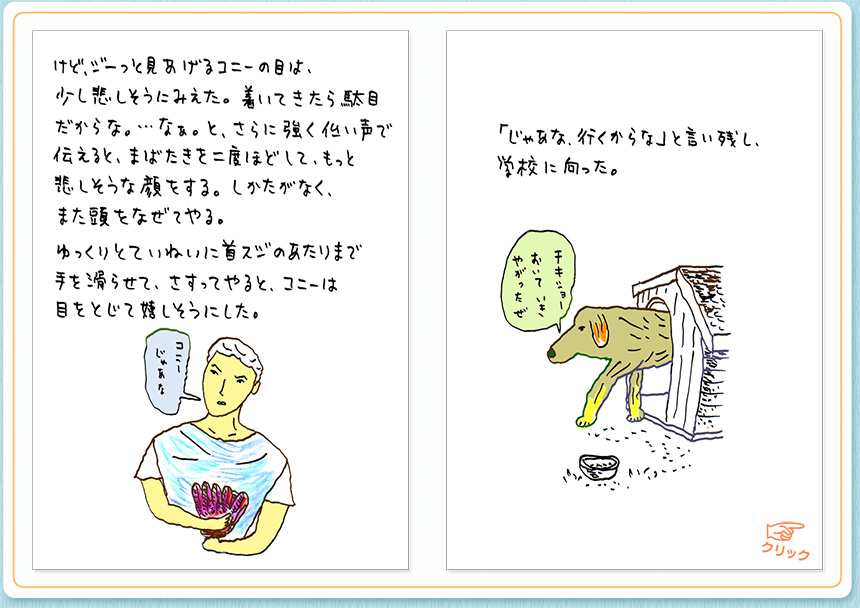 けど、ジーっと見あげるコニーの目は、
少し悲しそうにみえた。着いてきたら駄目
だからな。…なぁ。と、さらに強く低い声で
伝えると、まばたきを二度ほどして、もっと
悲しそうな顔をする。しかたがなく、
また頭をなぜてやる。
ゆっくりとていねいに首スジのあたりまで
手を滑らせて、さすってやると、コニーは
目をとじて嬉しそうにした。
コニー
じゃあな
「じゃあな、行くからな」と言い残し、
学校に向った。
チキショー
おいていき
やがったぜ
クリック